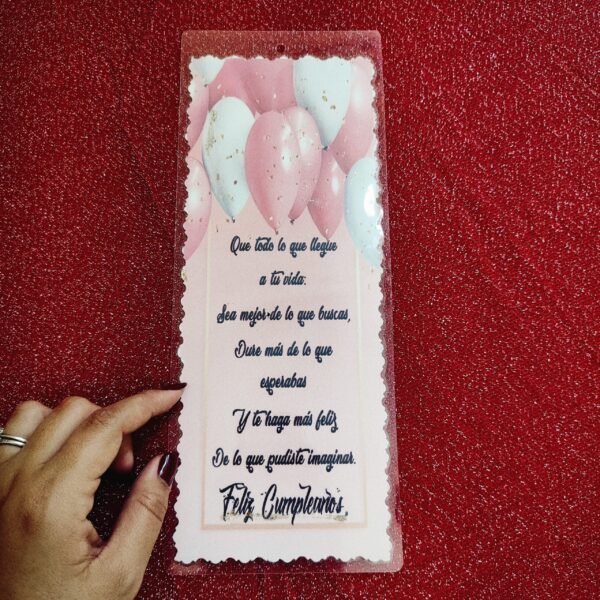 Que todo lo que llegue
a tu vida:
Sea mejor de lo que buscas,
Dure más de lo que
esperabas
Y te haga más feliz
De lo que pudiste imaginar.
Feliz Cumpleaños,